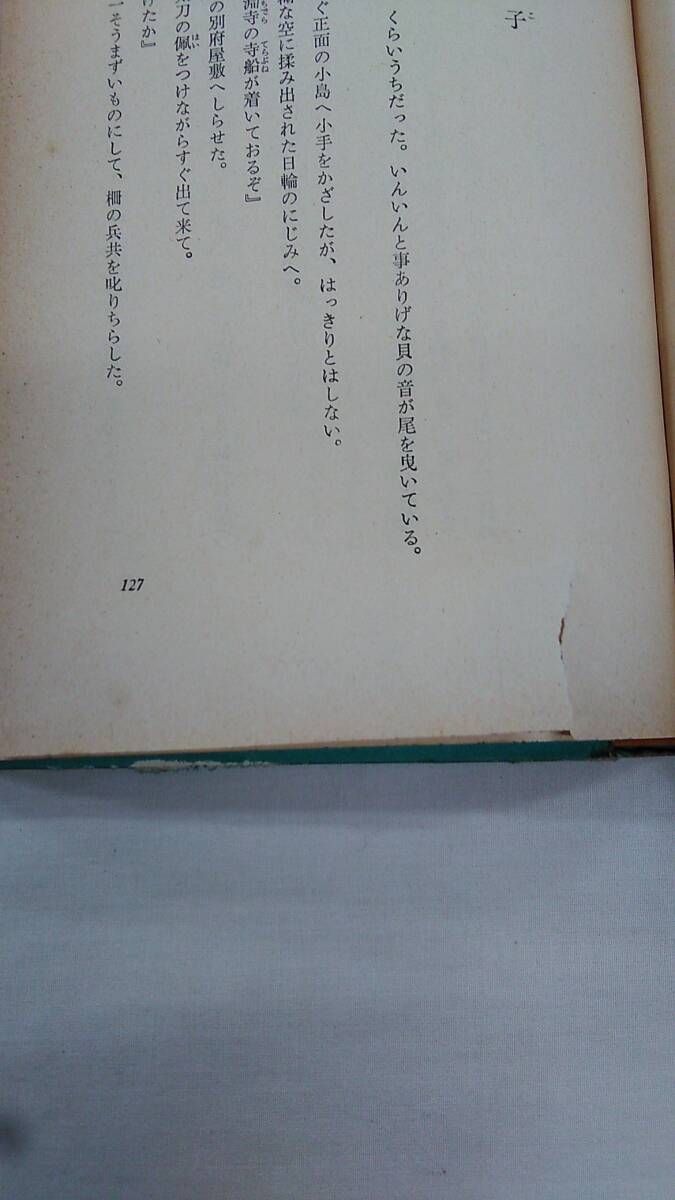 子
くらいうちだった。いんいんと事ありげな貝の音が尾を曳いている。
ぐ正面の小島へ小手をかざしたが、はっきりとはしない。
な空に揉み出された日輪のにじみへ。
淵寺の寺船が着いておるぞ』
の別府屋敷へしらせた。
刀の佩をつけながらすぐ出て来て。
けたか』
そうまずいものにして、柵の兵共を叱りちらした。
127